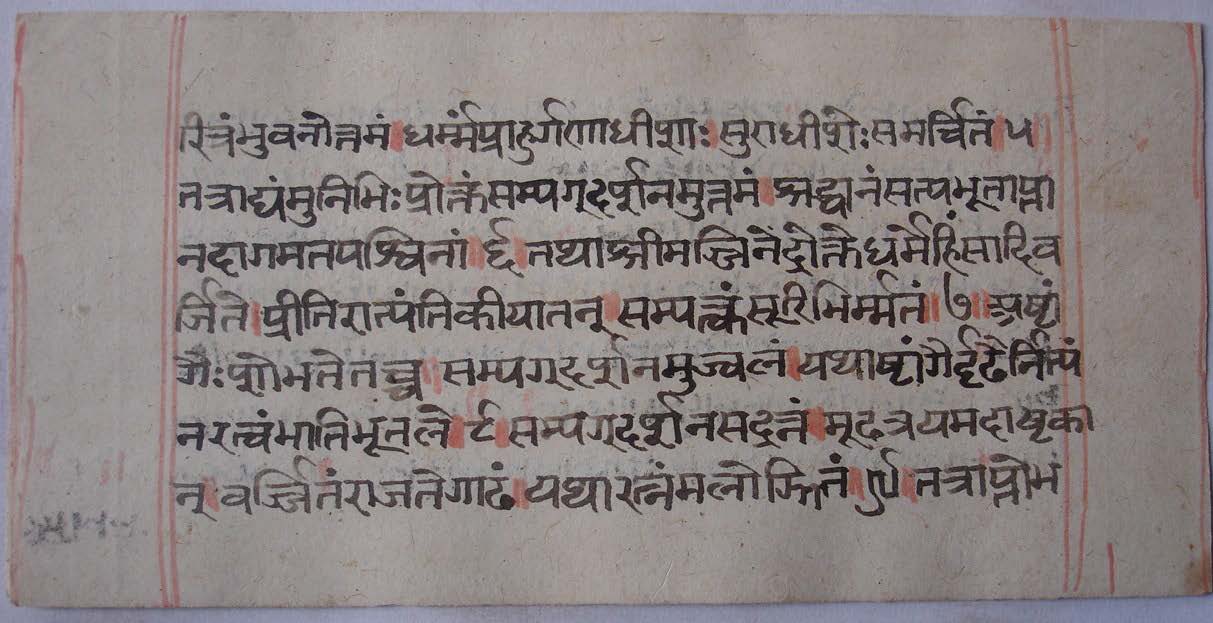 रित्रंभुवनोत्तमं।धर्म्मंप्राहुर्गणाधीशाः।सुराधीशैःसमर्चितं।५।
तत्राद्यंमुनिभिःप्रोक्तंसम्यग्दर्शनमुत्तमं।श्रद्धानंसत्यभूताप्ता
नदागमतपश्विनां।६।तथाश्रीमज्जिनेंद्रोक्तेधर्मेहिंसादिव
र्जिते।प्रीतिरात्यंतिकीयातत्।सम्यत्क्वंसूरिभिर्म्मतं।७।अष्टां
गैःशोभतेतच्च।सम्यग्दर्शनमुज्वलं।यथाष्टांगैर्दृढैर्नित्यं
नरत्वंभातिभूतले।८।सम्यग्दर्शनसद्रत्नं।मूढत्रयमदाष्टका
न्।वर्ज्जितंराजतेगाढं।यथारत्नंमलोझितं।९।तत्राप्तोमं